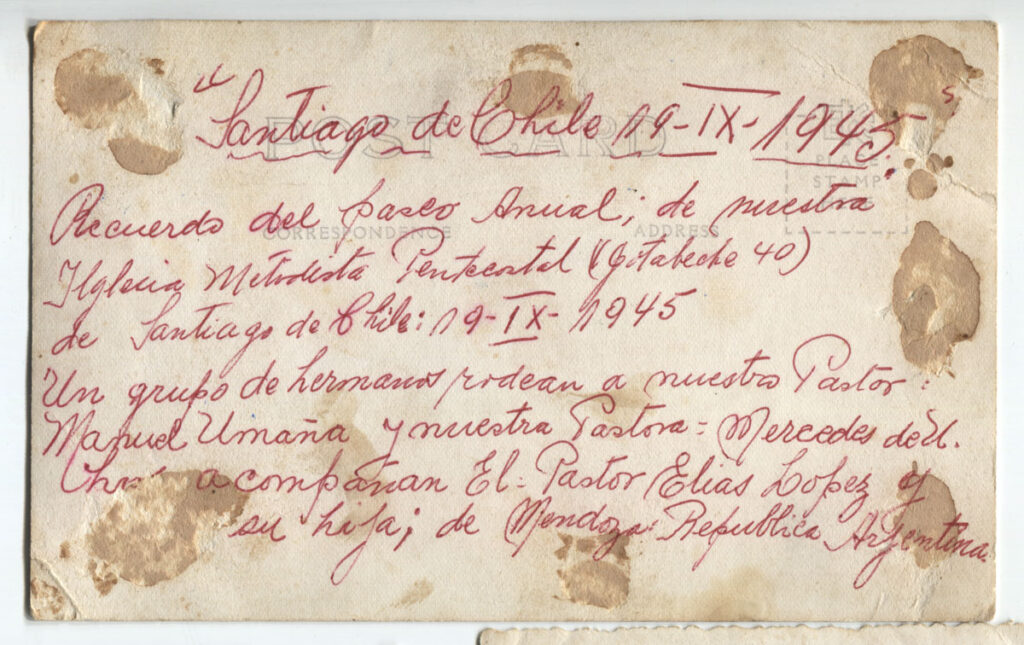 "Santiago de Chile 19-IX-1945"
POST CARD
PLACE
STAMP
CORRESPONDENCE
ADDRESS
Recuerdo del paseo Anual; de nuestra
Iglesia Metodista Pentecostal (Jotabeche 40)
de Santiago de Chile: 19-IX-1945
Un grupo de hermanos rodean a nuestro Pastor:
Manuel Umaña y nuestra Pastora = Mercedes de U.
acompañan El = Pastor Elias Lopez y
su hija; de Mendoza = Republica Argentina.